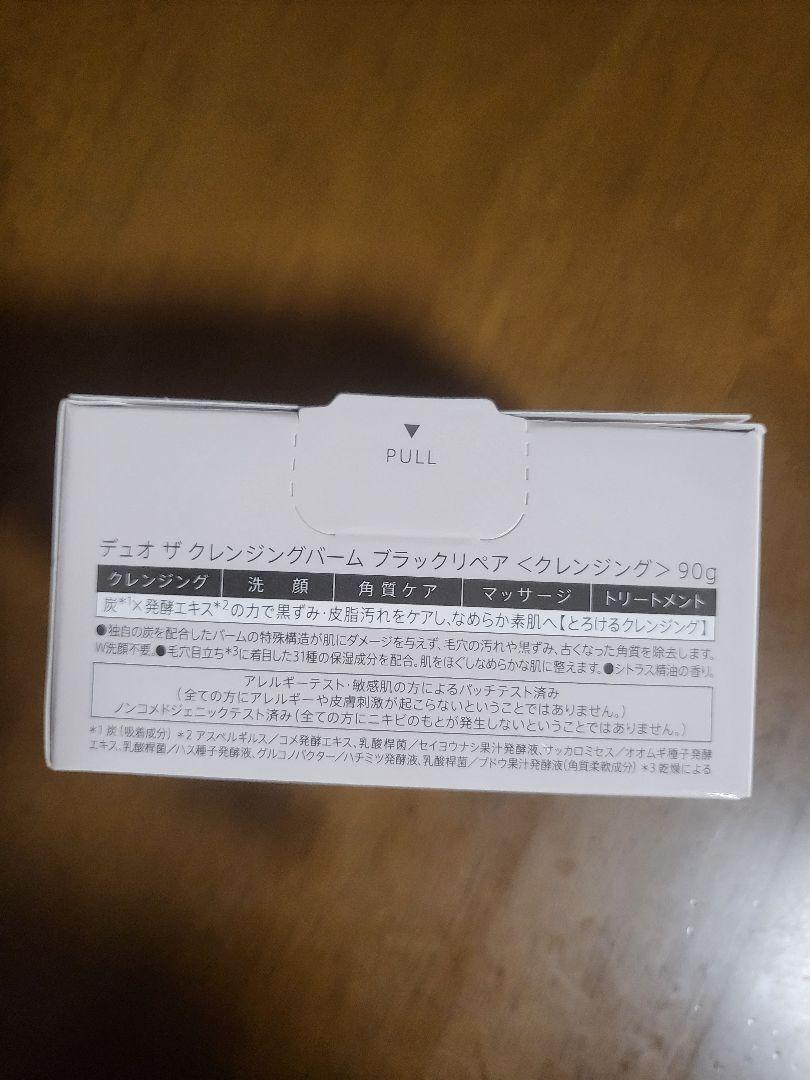 ▼
PULL
デュオ ザ クレンジングバーム ブラックリペア <クレンジング> 90g
クレンジング 洗 顔 角質ケア マッサージ トリートメント
炭*1×発酵エキス*2の力で黒ずみ・皮脂汚れをケアし、なめらか素肌へ【とろけるクレンジング】
●独自の炭を配合したバームの特殊構造が肌にダメージを与えず、毛穴の汚れや黒ずみ、古くなった角質を除去します。
W洗顔不要。●毛穴目立ち*3に着目した31種の保湿成分を配合。肌をほぐしなめらかな肌に整えます。●シトラス精油の香り。
アレルギーテスト・敏感肌の方によるパッチテスト済み
(全ての方にアレルギーや皮膚刺激が起こらないということではありません。)
ノンコメドジェニックテスト済み(全ての方にニキビのもとが発生しないということではありません。)
*1 炭(吸着成分) *2 アスペルギルス/コメ発酵エキス、乳酸桿菌/セイヨウナシ果汁発酵液、サッカロミセス/オオムギ種子発酵
エキス、乳酸桿菌/ハス種子発酵液、グルコノバクター/ハチミツ発酵液、乳酸桿菌/ブドウ果汁発酵液(角質柔軟成分) *3 乾燥による